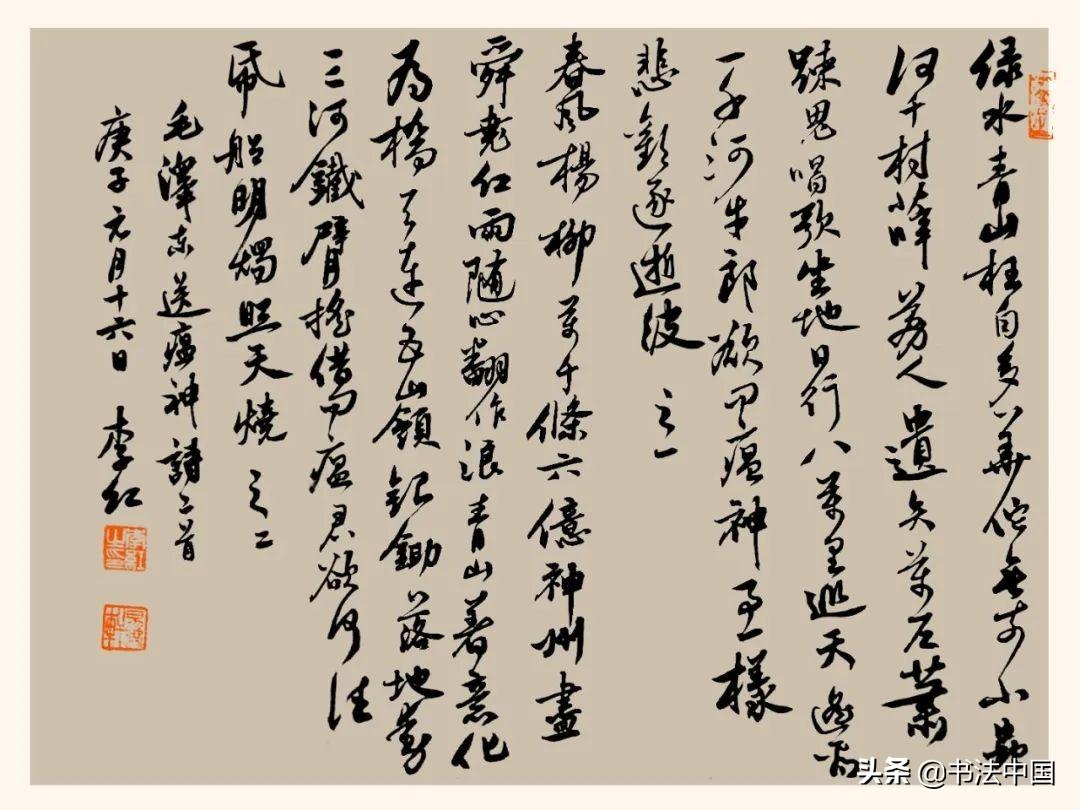 绿水青山枉自多華佗無奈小蟲
何千村薜荔人遺矢萬戶蕭
踈鬼唱歌坐地日行八萬里巡天遙看
一千河牛郎欲問瘟神事一樣
悲歡逐逝波 之一
春風楊柳萬千條六億神州盡
舜堯红雨隨心翻作浪青山著意化
為橋天連五嶺銀鋤落地動
三河鐵臂搖借問瘟君欲何往
帋船明燭照天燒 之二
毛澤东送瘟神詩二首
庚子元月十六日 李红
头条 @书法中国